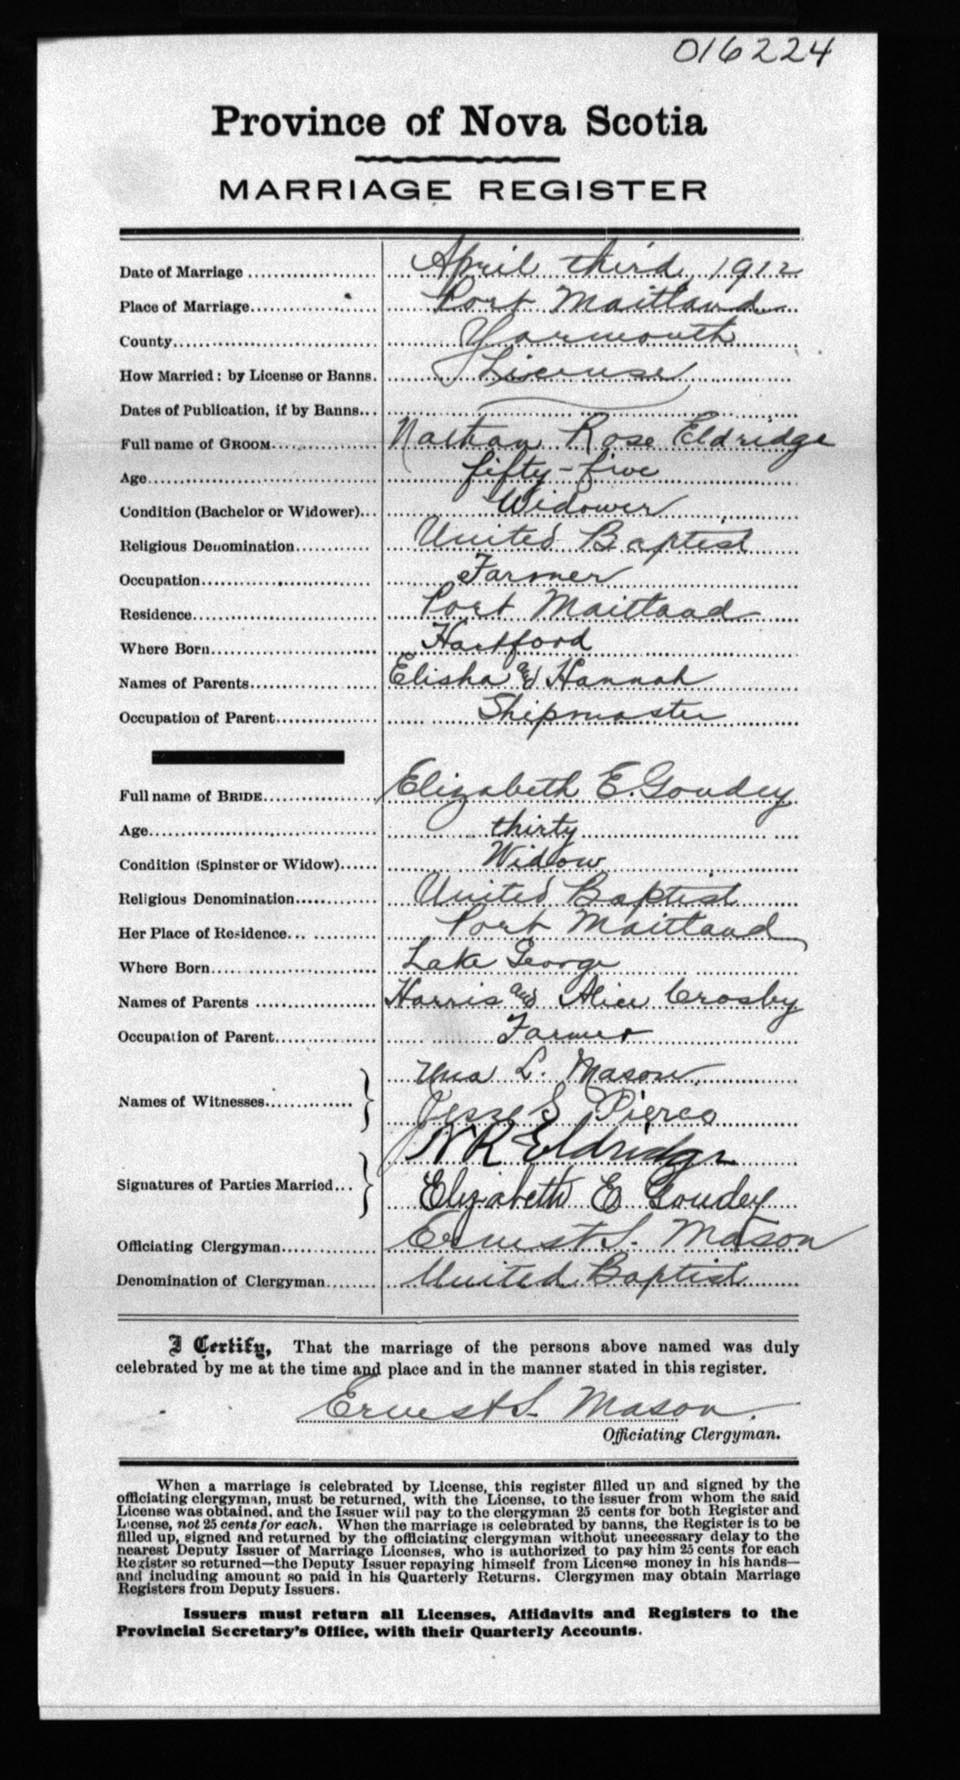 016224
Province of Nova Scotia
MARRIAGE REGISTER
Date of Marriage April third, 1912
Place of Marriage Port Maitland
County Yarmouth
How Married: by License or Banns. License
Dates of Publication, if by Banns
Full name of GROOM Nathan Rose Eldridge
Age fifty-five
Condition (Bachelor or Widower) Widower
Religious Denomination United Baptist
Occupation Farmer
Residence Port Maitland
Where Born Hartford
Names of Parents Elisha and Hannah
Occupation of Parent Shipmaster
Full name of BRIDE Elizabeth E. Goudey
Age thirty
Condition (Spinster or Widow) Widow
Religious Denomination United Baptist
Her Place of Residence Port Maitland
Where Born Lake George
Names of Parents Harris and Alice Crosby
Occupation of Parent Farmer
Names of Witnesses Una L. Mason
Jesse S. Pierce
Signatures of Parties Married N R Eldridge
Elizabeth E Goudey
Officiating Clergyman Ernest S. Mason
Denomination of Clergyman United Baptist
I Certify, That the marriage of the persons above named was duly
celebrated by me at the time and place and in the manner stated in this register.
Ernest S. Mason.
Officiating Clergyman.
When a marriage is celebrated by License, this register filled up and signed by the
officiating clergyman, must be returned, with the License, to the issuer from whom the said
License was obtained, and the Issuer will pay to the clergyman 25 cents for both Register and
License, not 25 cents for each. When the marriage is celebrated by banns, the Register is to be
filled up, signed and returned by the officiating clergyman without unnecessary delay to the
nearest Deputy Issuer of Marriage Licenses, who is authorized to pay him 25 cents for each
Register so returned—the Deputy Issuer repaying himself from License money in his hands—
and including amount so paid in his Quarterly Returns. Clergymen may obtain Marriage
Registers from Deputy Issuers.
Issuers must return all Licenses, Affidavits and Registers to the
Provincial Secretary's Office, with their Quarterly Accounts.